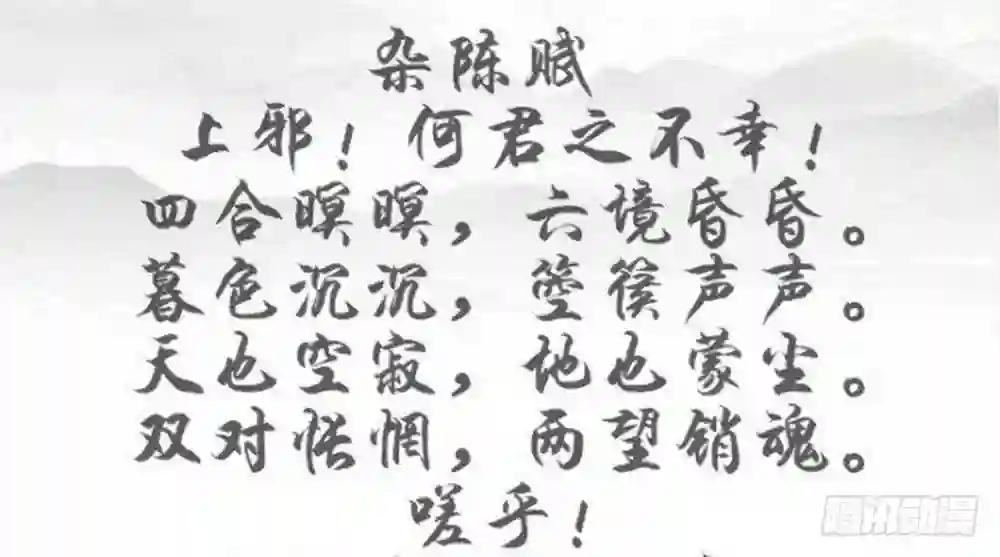 杂陈赋
上邪！何君之不幸！
四合暝暝，六境昏昏。
暮色沉沉，箜篌声声。
天也空寂，地也蒙尘。
双对怅惘，两望销魂。
嗟乎！
腾讯动漫